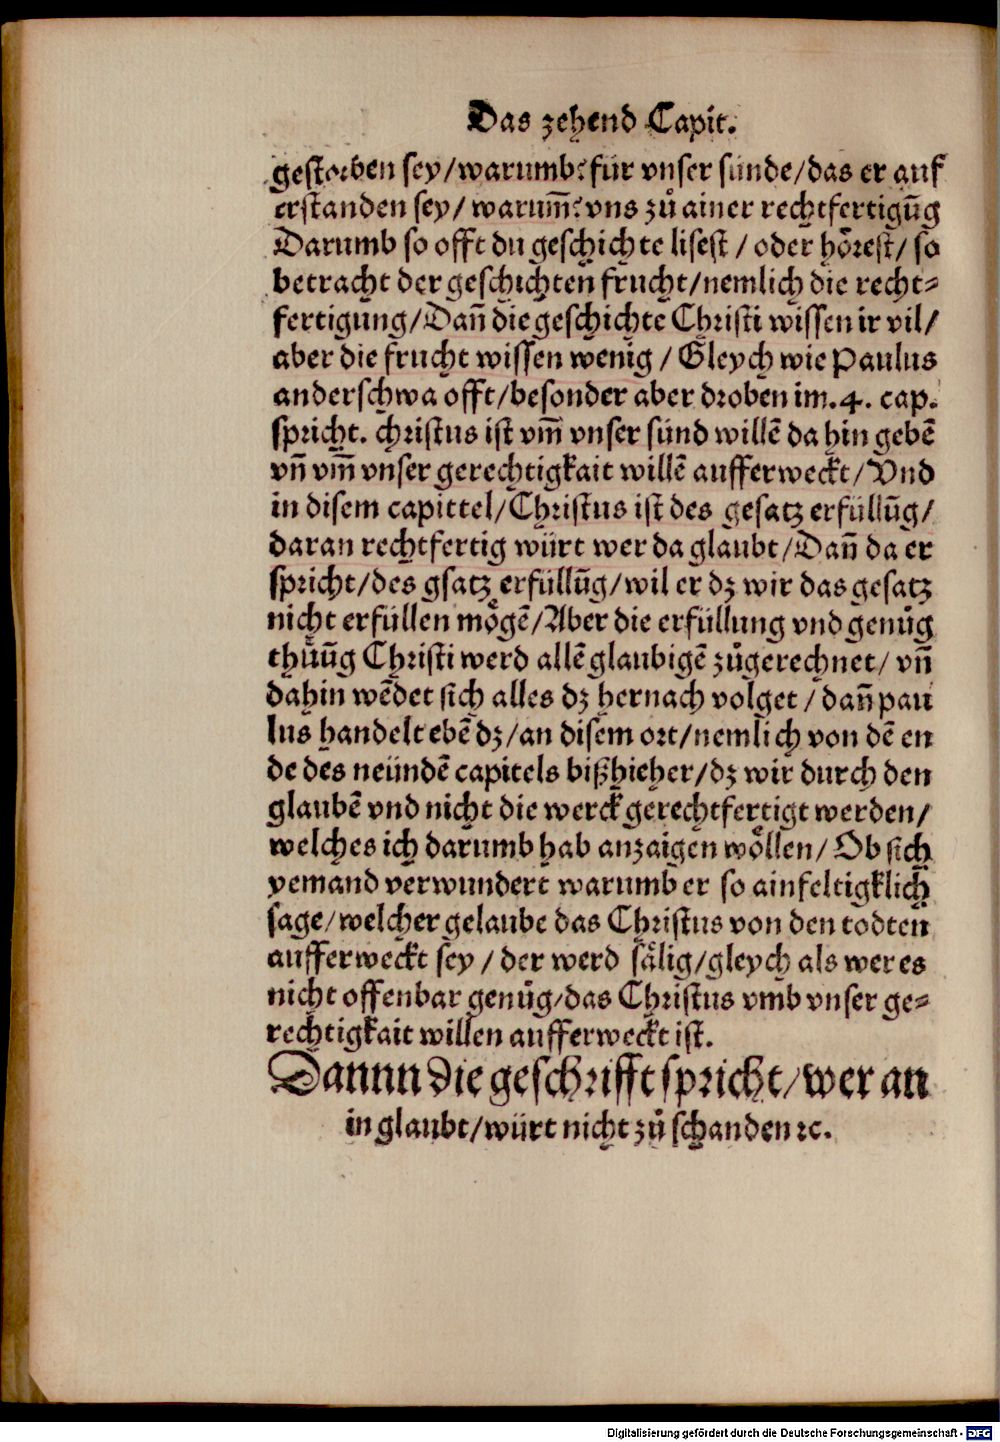 Das zehend Capit.
gestorben sey/warumb? für vnser sünde/das er auf
erstanden sey/ warum̃? vns zů ainer rechtfertigũg
Darumb so offt du geschichte lisest / oder hörest/ so
betracht der geschichten frucht/nemlich die recht⸗
fertigung/Dañ die geschichte Christi wissen ir vil/
aber die frucht wissen wenig / Gleych wie Paulus
anderschwa offt/besonder aber droben im.4. cap.
spricht. christus ist vm̃ vnser sünd willẽ da hin gebẽ
vñ vm̃ vnser gerechtigkait willẽ aufferweckt/Vnd
in disem capittel/Christus ist des gesatz erfüllũg/
daran rechtfertig würt wer da glaubt/Dañ da er
spricht/des gsatz erfüllũg/wil er dz wir das gesatz
nicht erfüllen mögẽ/Aber die erfüllung vnd genůg
thůũg Christi werd allẽ glaubigẽ zůgerechnet/ vñ
dahin wẽdet sich alles dz hernach volget / dañ pau
lus handelt ebẽ dz/an disem ort/nemlich von dẽ en
de des neündẽ capitels bißhieher/dz wir durch den
glaubẽ vnd nicht die werck gerechtfertigt werden/
welches ich darumb hab anzaigen wöllen/ Ob sich
yemand verwundert warumb er so ainfeltigklich
sage/welcher gelaube das Christus von den todten
aufferweckt sey / der werd sälig/gleych als wer es
nicht offenbar genůg/das Christus vmb vnser ge⸗
rechtigkait willen aufferweckt ist.
Dannn die geschrifft spricht/wer an
in glaubt/würt nicht zů schanden ꝛc.
Digitalisierung gefördert durch die Deutsche Forschungsgemeinschaft - DFG